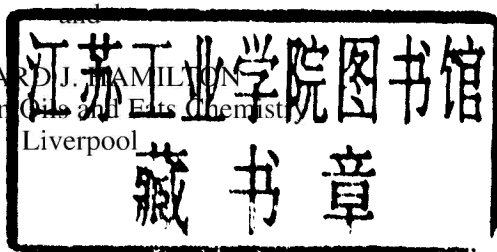 and
江苏工业学院图书馆
ARD J. HAMILTON
n Oils and Fats Chemistry
Liverpool
藏书章